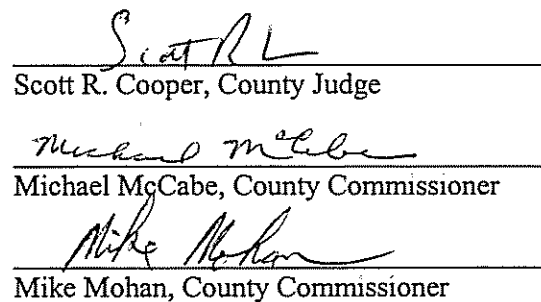 Scott R
Scott R. Cooper, County Judge
Michael McCabe
Michael McCabe, County Commissioner
Mike Mohan
Mike Mohan, County Commissioner